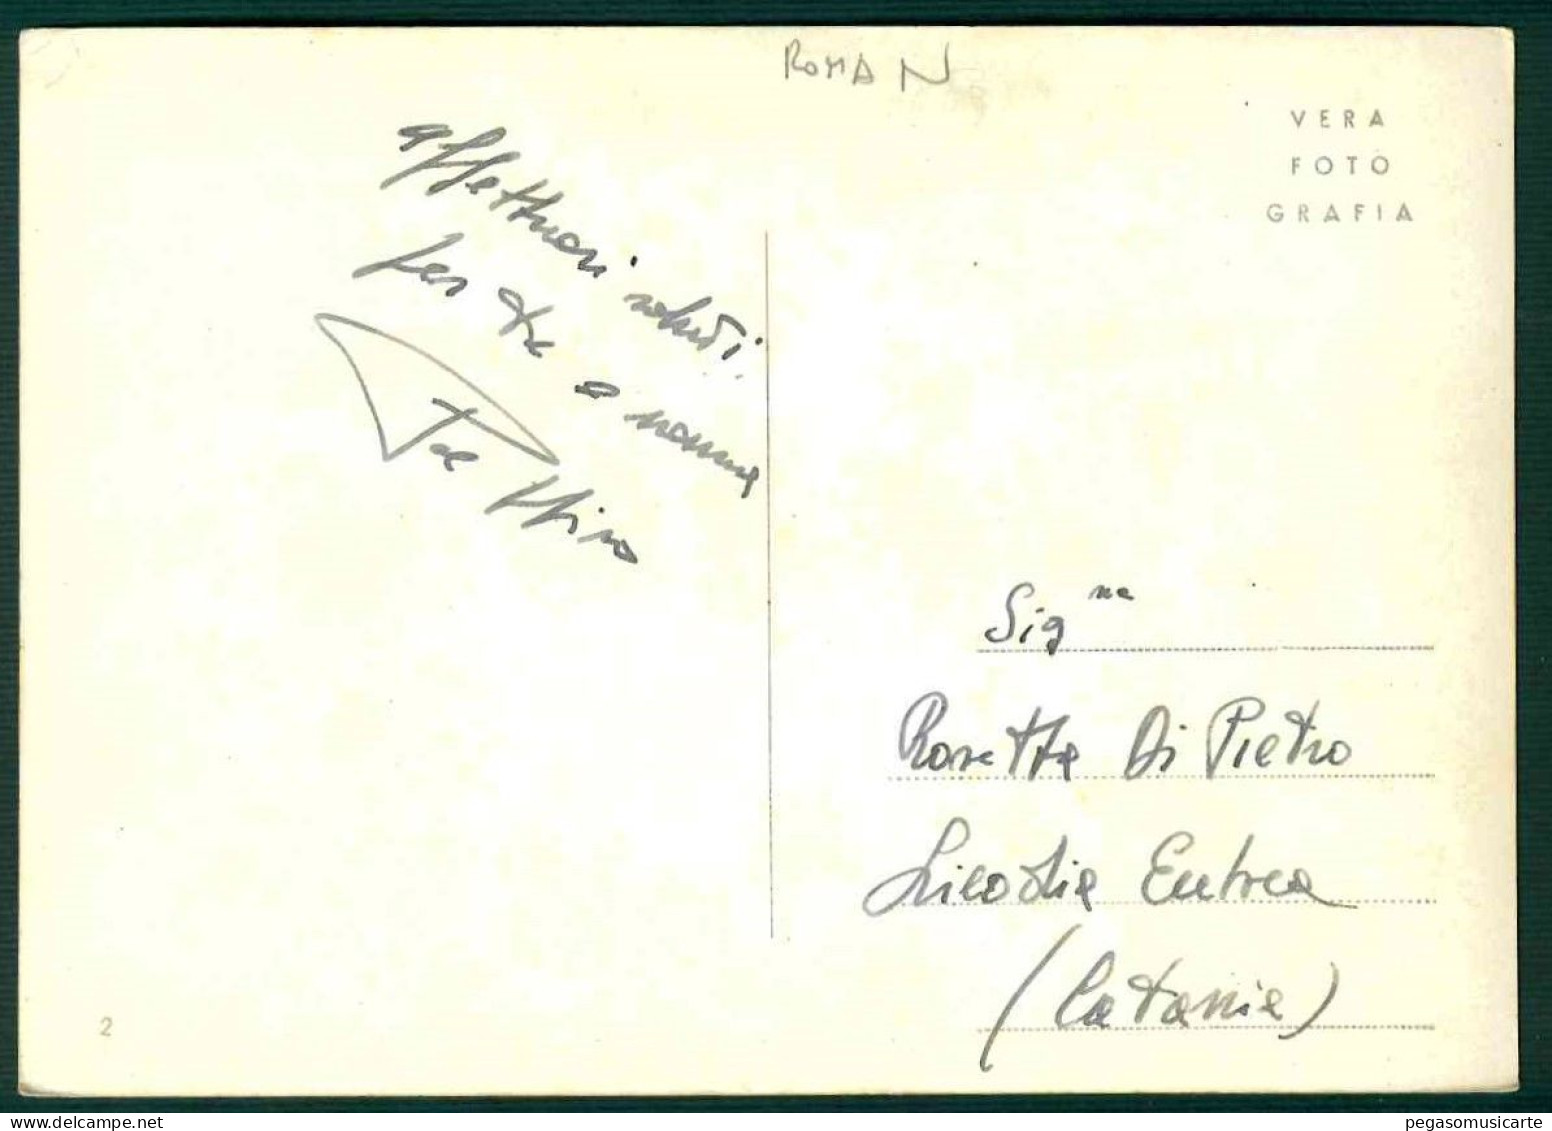 ROMA N
VERA
FOTO
GRAFIA
affettuosi saluti
per te e nonna
Sig na
Rosetta Di Pietro
Licodia Eubea
(Catania)
2
pegasomusicarte